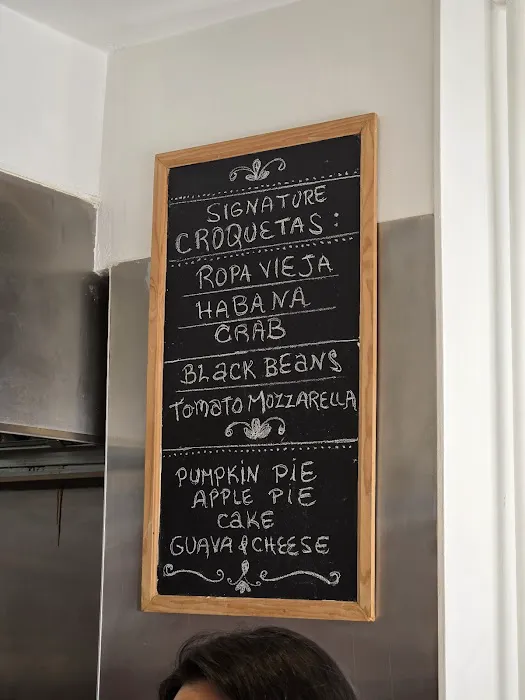 SIGNATURE
CROQUETAS:
ROPA VIEJA
HABANA
CRAB
BLACK BEANS
TOMATO MOZZARELLA
PUMPKIN PIE
APPLE PIE
CAKE
GUAVA & CHEESE